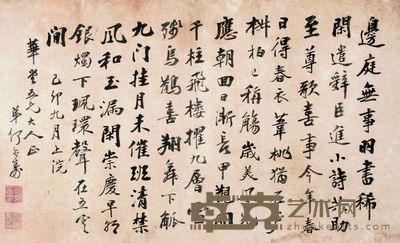 邊庭無事羽書稀
閑遣辭臣進小詩共助
至尊歌喜事今年春
日得春衣葦桃猶在
椒柏已稱觴歲美風
應朝回日漸長甲觀開
千柱飛樓擢九層
殘烏鵲喜翔舞下觚
九門挂月未催班清禁
風和玉漏閑崇慶早朝
銀燭下珮環聲在五雲
間
己卯九月上浣
華五兄大人正
弟何